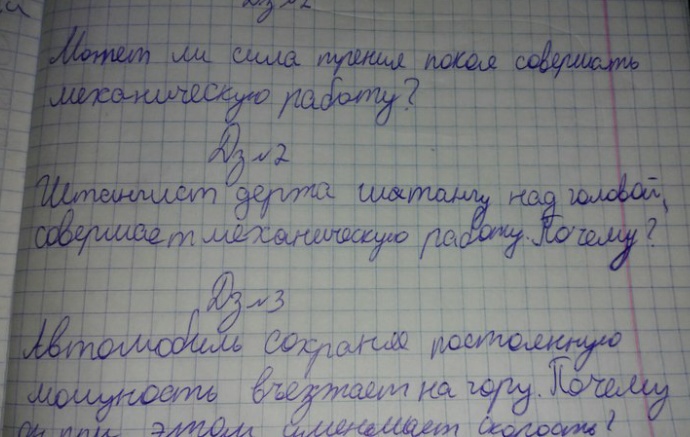 Дз №2
Может ли сила трения покоя совершать
механическую работу?
Дз №2
Штангист держа шатангу над головой,
совершает механическую работу. Почему?
Дз №3
Автомобиль сохраняя постоянную
мощность въезжает на гору. Почему
он при этом уменьшает скорость?